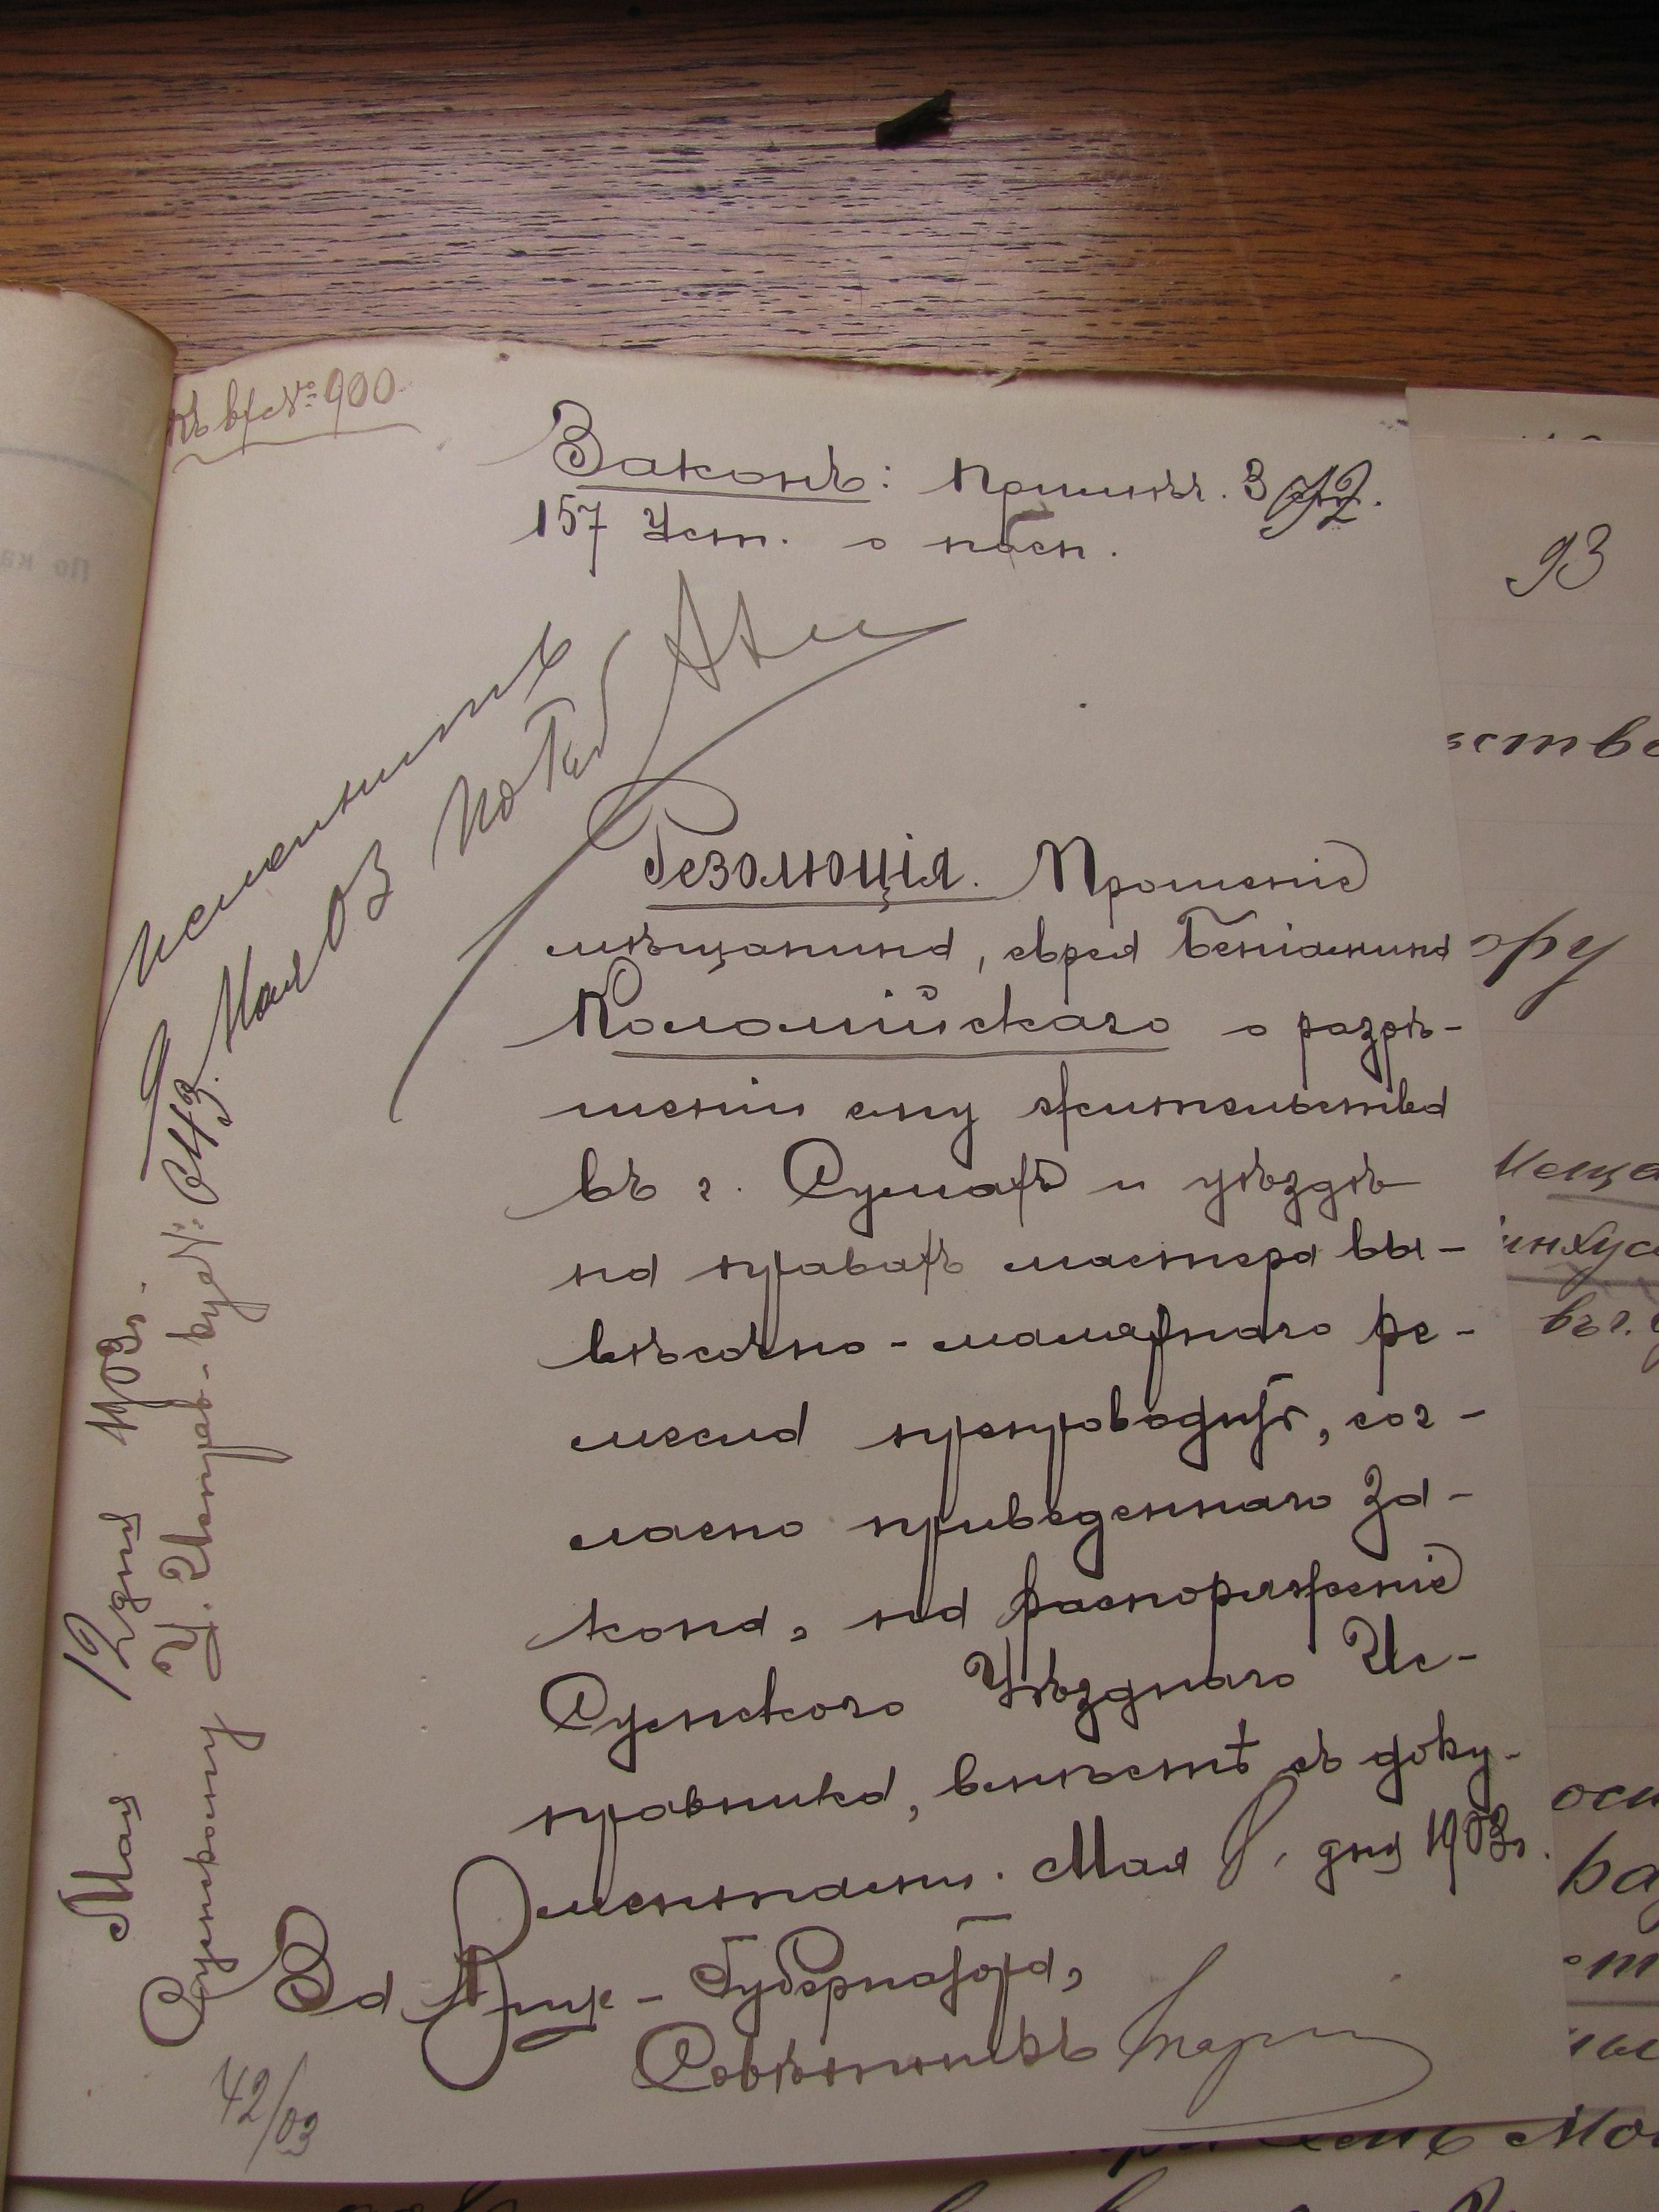 Къ вх № 900
Законъ: Примѣч. 3 ст.
157 Уст. о пасп.
Исполнить
9 Мая 03
Резолюція. Прошеніе
мѣщанина, еврея Беніамина
Коломійскаго о разрѣ-
шеніи ему жительства
въ г. Сумахъ и уѣздѣ
на правахъ мастера вы-
вѣсочно-малярнаго ре-
месла препроводить, сог-
ласно приведеннаго за-
кона, на распоряженіе
Сумскаго Уѣзднаго Ис-
правника, вмѣстѣ съ доку-
ментами. Мая 8. дня 1903 г.
За Вице-Губернатора,
Совѣтникъ
Мая 12 дня 1903 г.
Сумскому У. Исправ-ку №
42/03
93
ству
ору
Меща
инхус
въ г.